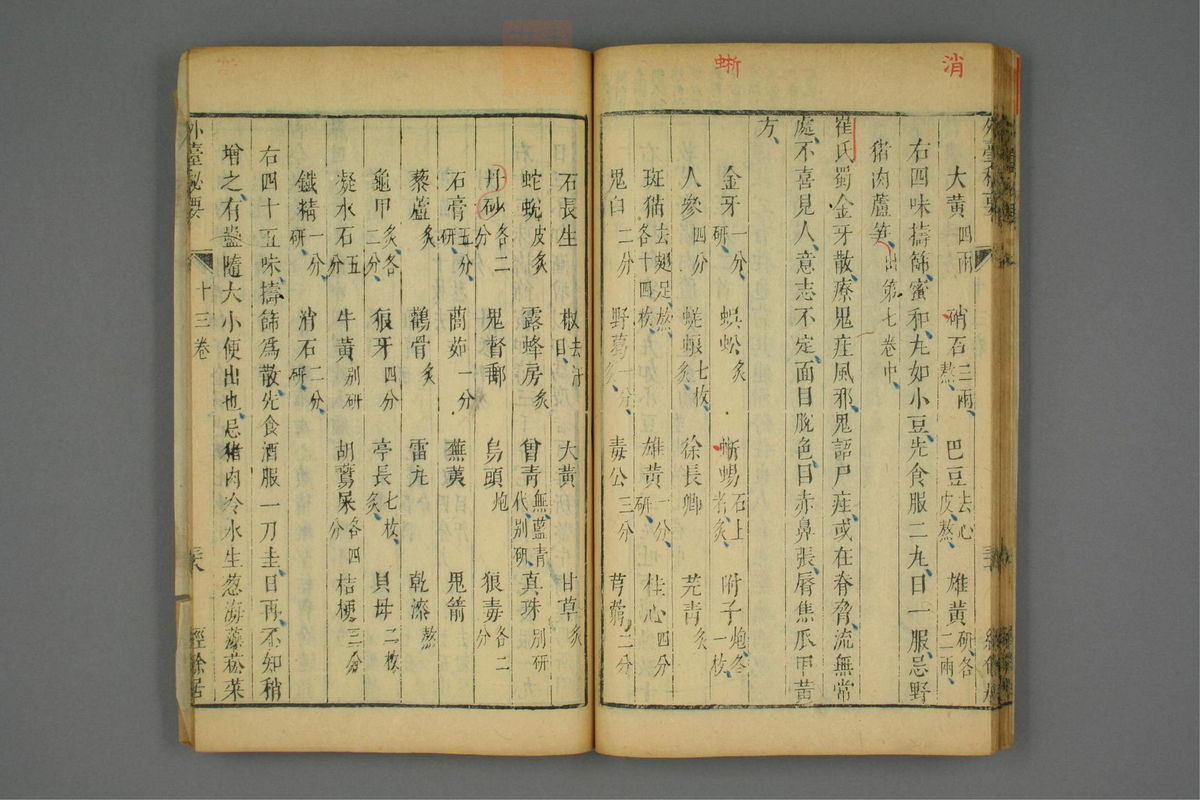 消
蜥
大黃四兩 硝石三兩熬 巴豆去心皮熬 雄黃研各二兩
右四味擣篩蜜和九如小豆先食服二九日一服忌野
猪肉蘆笋出第七卷中
崔氏蜀金牙散療鬼疰風邪鬼語尸疰或在脊脅流無常
處不喜見人意志不定面目脫色目赤鼻張脣焦爪甲黃
方
金牙一分研 蜈蚣炙 蜥蜴石上者炙 附子炮各一枚
人參四分 蜣蜋七枚炙 徐長卿 芫青炙
斑猫去翅足熬各十四枚 雄黃一分研 桂心四分
鬼臼二分 野葛一分炙 毒公三分 芎藭二分
石長生 椒去汗目 大黃 甘草炙
蛇蛻皮炙 露蜂房炙 曾青無藍青代別研 真珠別研
丹砂各二分 鬼督郵 烏頭炮 狼毒各二分
石膏五分研 䕡茹一分 蕪荑 鬼箭
藜蘆炙 鸛骨炙 雷九 乾漆熬
龜甲炙各二分 狼牙四分 亭長七枚炙 貝母二枚
凝水石五分 牛黃別研 胡鷰屎各四分 桔梗三分
鐵精一分研 消石二分研
右四十五味擣篩爲散先食酒服一刀圭日再不知稍
增之有蠱隨大小便出也忌猪肉冷水生葱海藻菘菜
外臺秘要
十三卷
經餘居